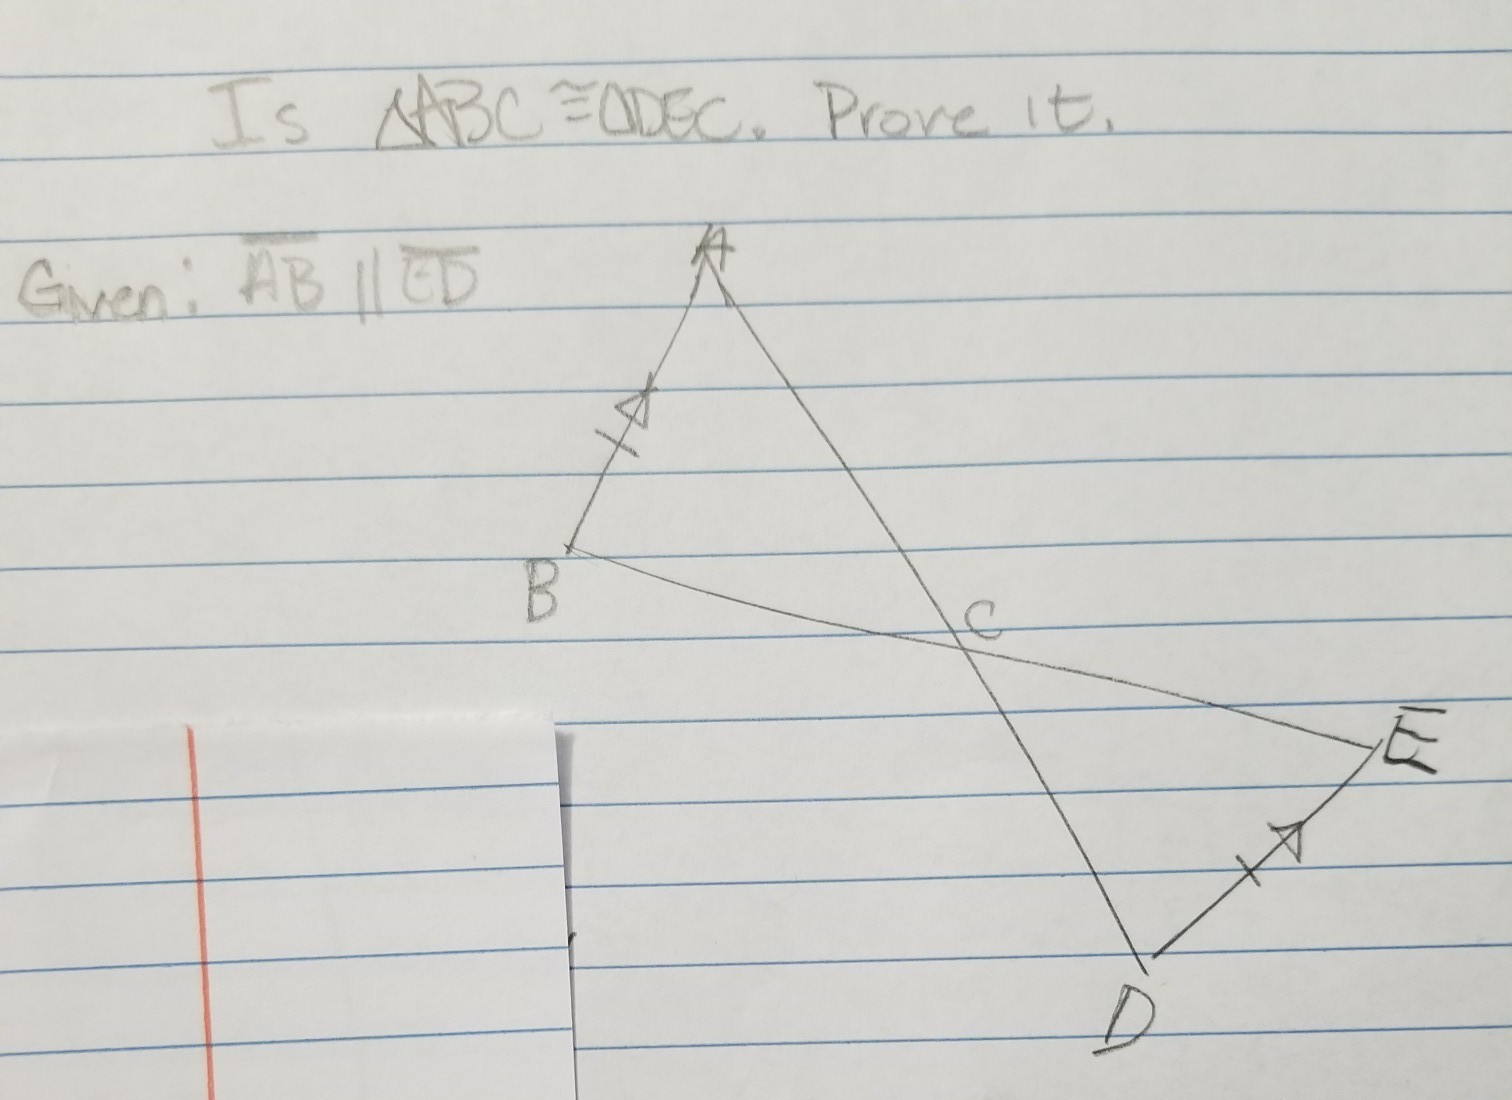 Is △ABC ≅ △DEC. Prove it.
Given: A̅B̅ || E̅D̅
A
B
C
E
D